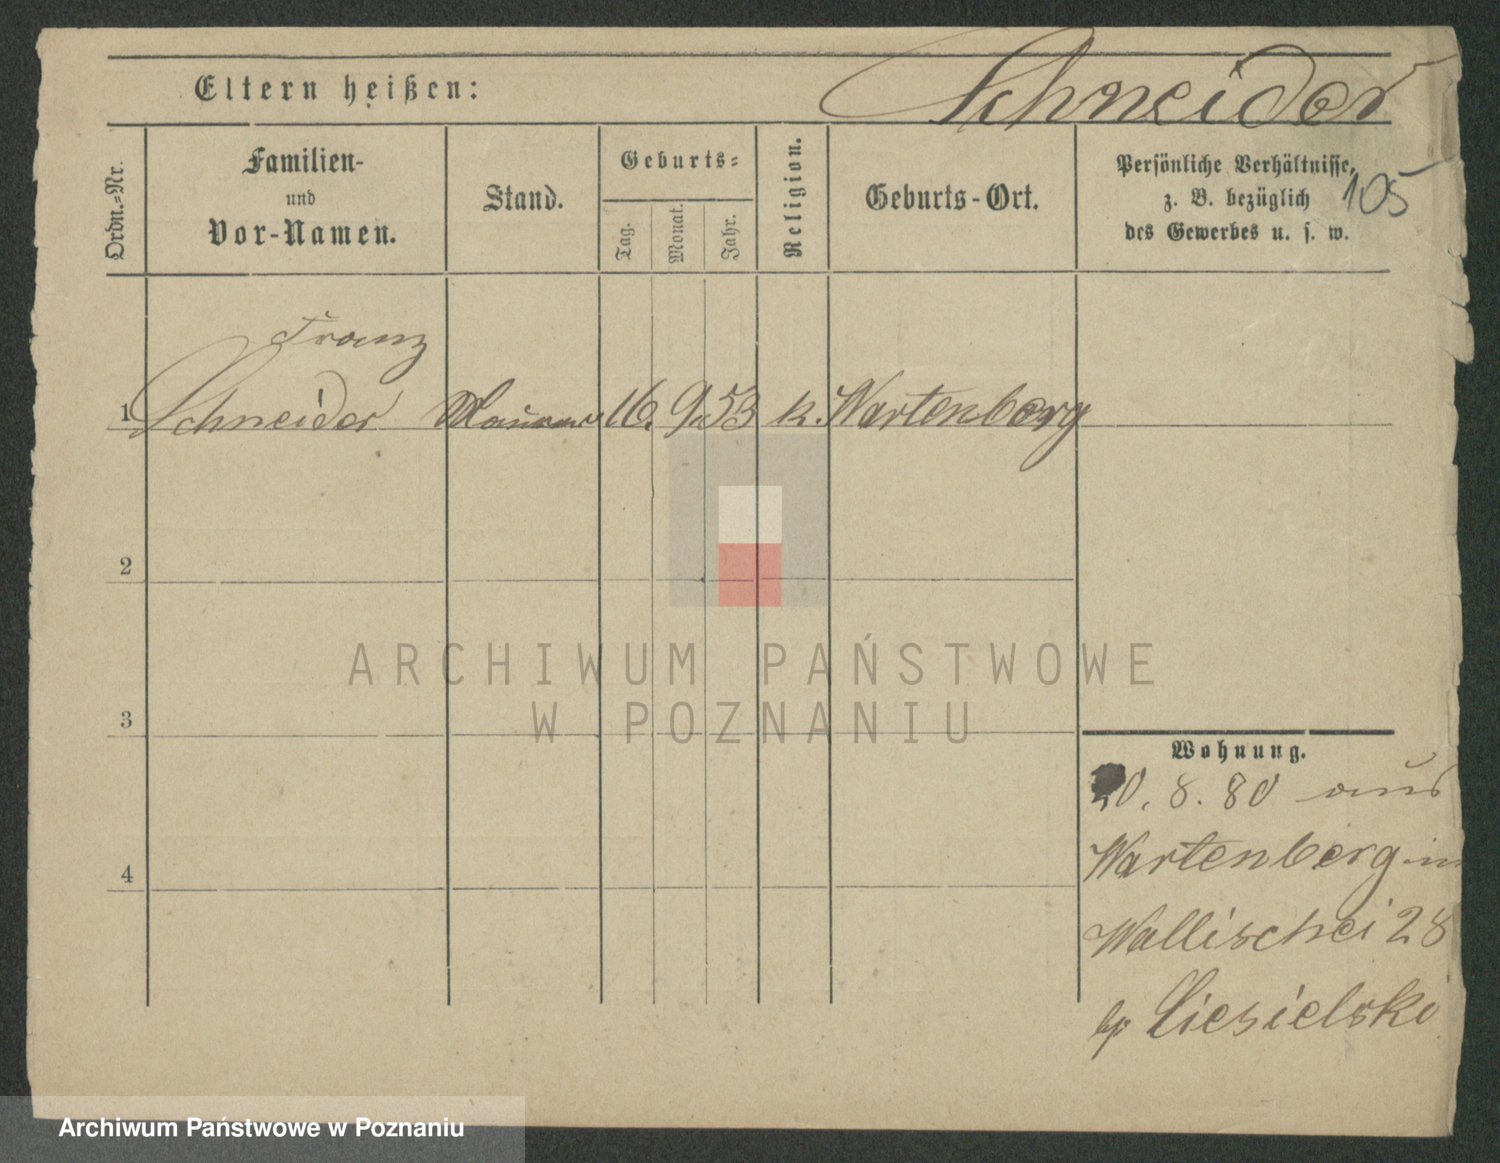 Eltern heißen:
Schneider
Ordn.-Nr.
Familien-
und
Vor-Namen.
Stand.
Geburts-
Tag.
Monat.
Jahr.
Religion.
Geburts-Ort.
Persönliche Verhältnisse,
z. B. bezüglich
des Gewerbes u. s. w.
105
Franz
1 Schneider Maurer 16. 9. 53 k. Wartenberg
2
3
4
Wohnung.
20. 8. 80 aus
Wartenberg in
Wallischei 28
Ciesielski
ARCHIWUM PAŃSTWOWE
W POZNANIU
Archiwum Państwowe w Poznaniu